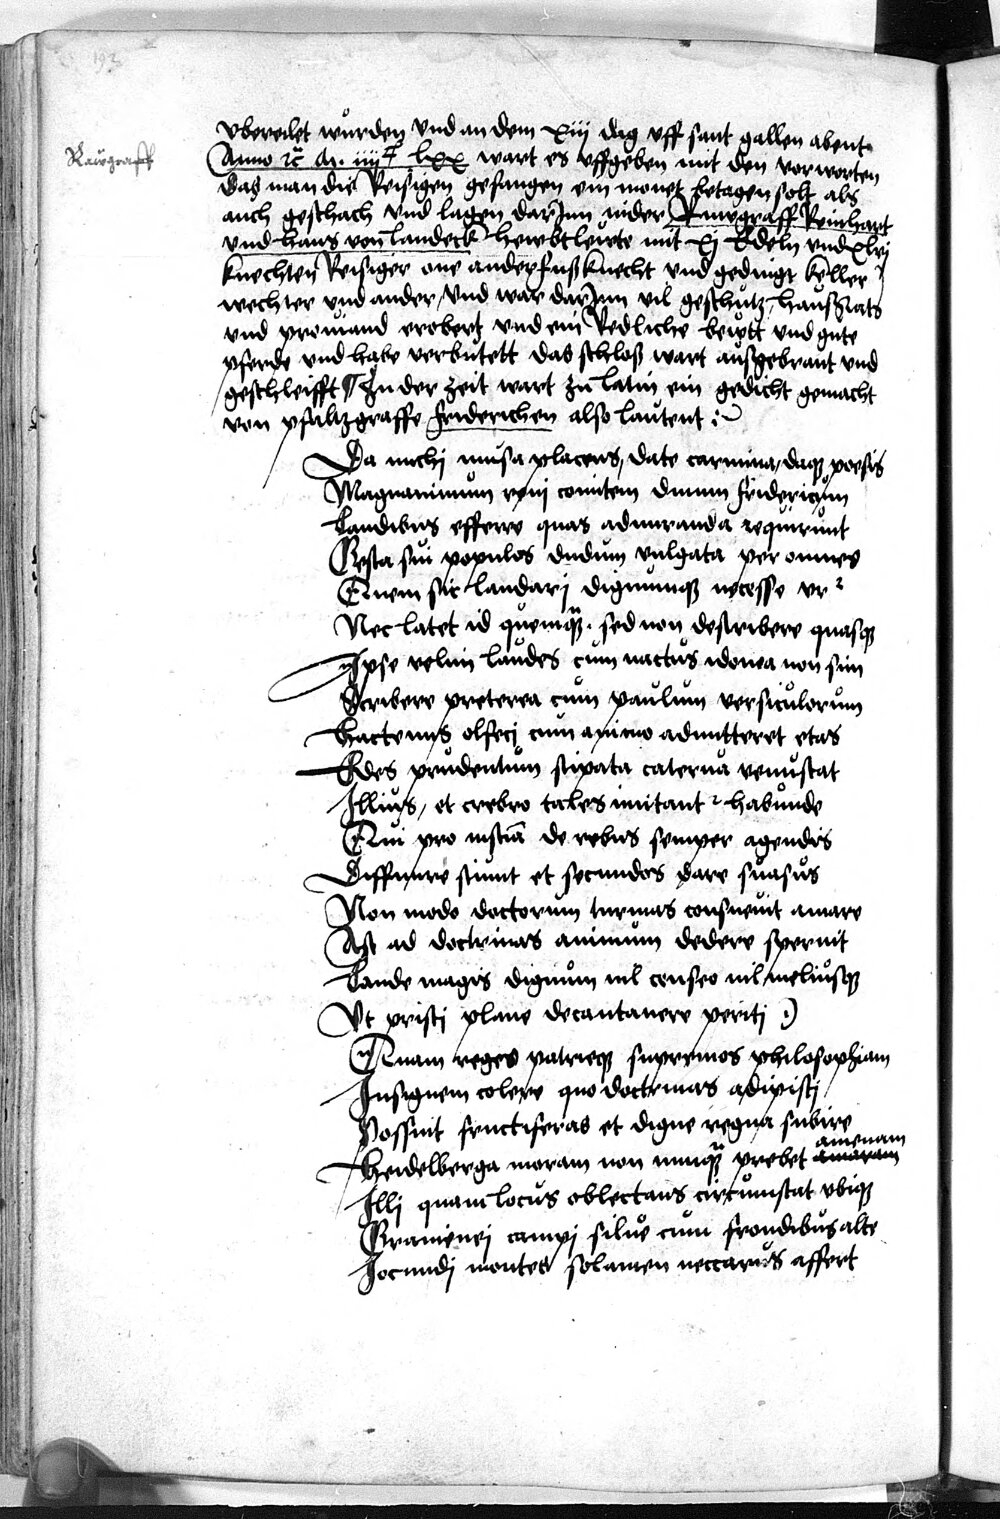 193
Raugraff
vbereilet wurden vnd an dem xiij dag vff sant gallen abent
Anno &c M. iiijc lxx wart es vffgeben mit den vorworten
das man die Reisigen gefangen ein monet betagen solt als
auch geschach vnd lagen darInn nider Ruwgraff Reinhart
vnd hans von landeck hewbtleute mit xj Edeln vnd xlvj
knechten Reisiger one ander fußknecht vnd gedingt keller
wechter vnd ander, vnd war darInn vil geschutz, haußrats
vnd proviand erobert vnd ein Redliche bewtt vnd gute
pferde vnd habe verbutett das schloß wart außgebrant vnd
geschleifft ¶ In der zeit wart zu latin ein gedicht gemacht
von pfaltzgraffe friderichen also lautent :
Da michj musa placens, date carmina, daq poesis
Magnanimum renj comitem diuum fridericum
Laudibus efferre quas admiranda requirunt
Gesta sui populos dudum vulgata per omnes
Quem sic laudarj dignumq necesse vr
Nec latet id quemq. sed non describere quasq
Ipse velim laudes cum nactus idonea non sim
Scribere preterea cum paulum versiculorum
Hactenus olfecj cum animo admitteret etas
Edes prudentum stipata caterua venustat
Illius, et crebro tales imitant habunde
Qui pro iusticia de rebus semper agendis
Diffinire sciunt et secundos dare suasus
Non modo doctorum turmas consueuit amare
Ast ad doctrinas animum dedere spernit
Laude magis dignum nil censeo nil meliusq
Vt priscj plane decantauere peritj :)
Quam reges patrieq supremos philosophiam
Insignem colere quo doctrinas adipiscj
Possint fructiferas et digne regna subire
Heidelberga moram non numq prebet amenam
Illj quam locus oblectans circumstat vbiq
Graminej campj silue cum frondibus alte
Jocundj montes solamen neccarus affert